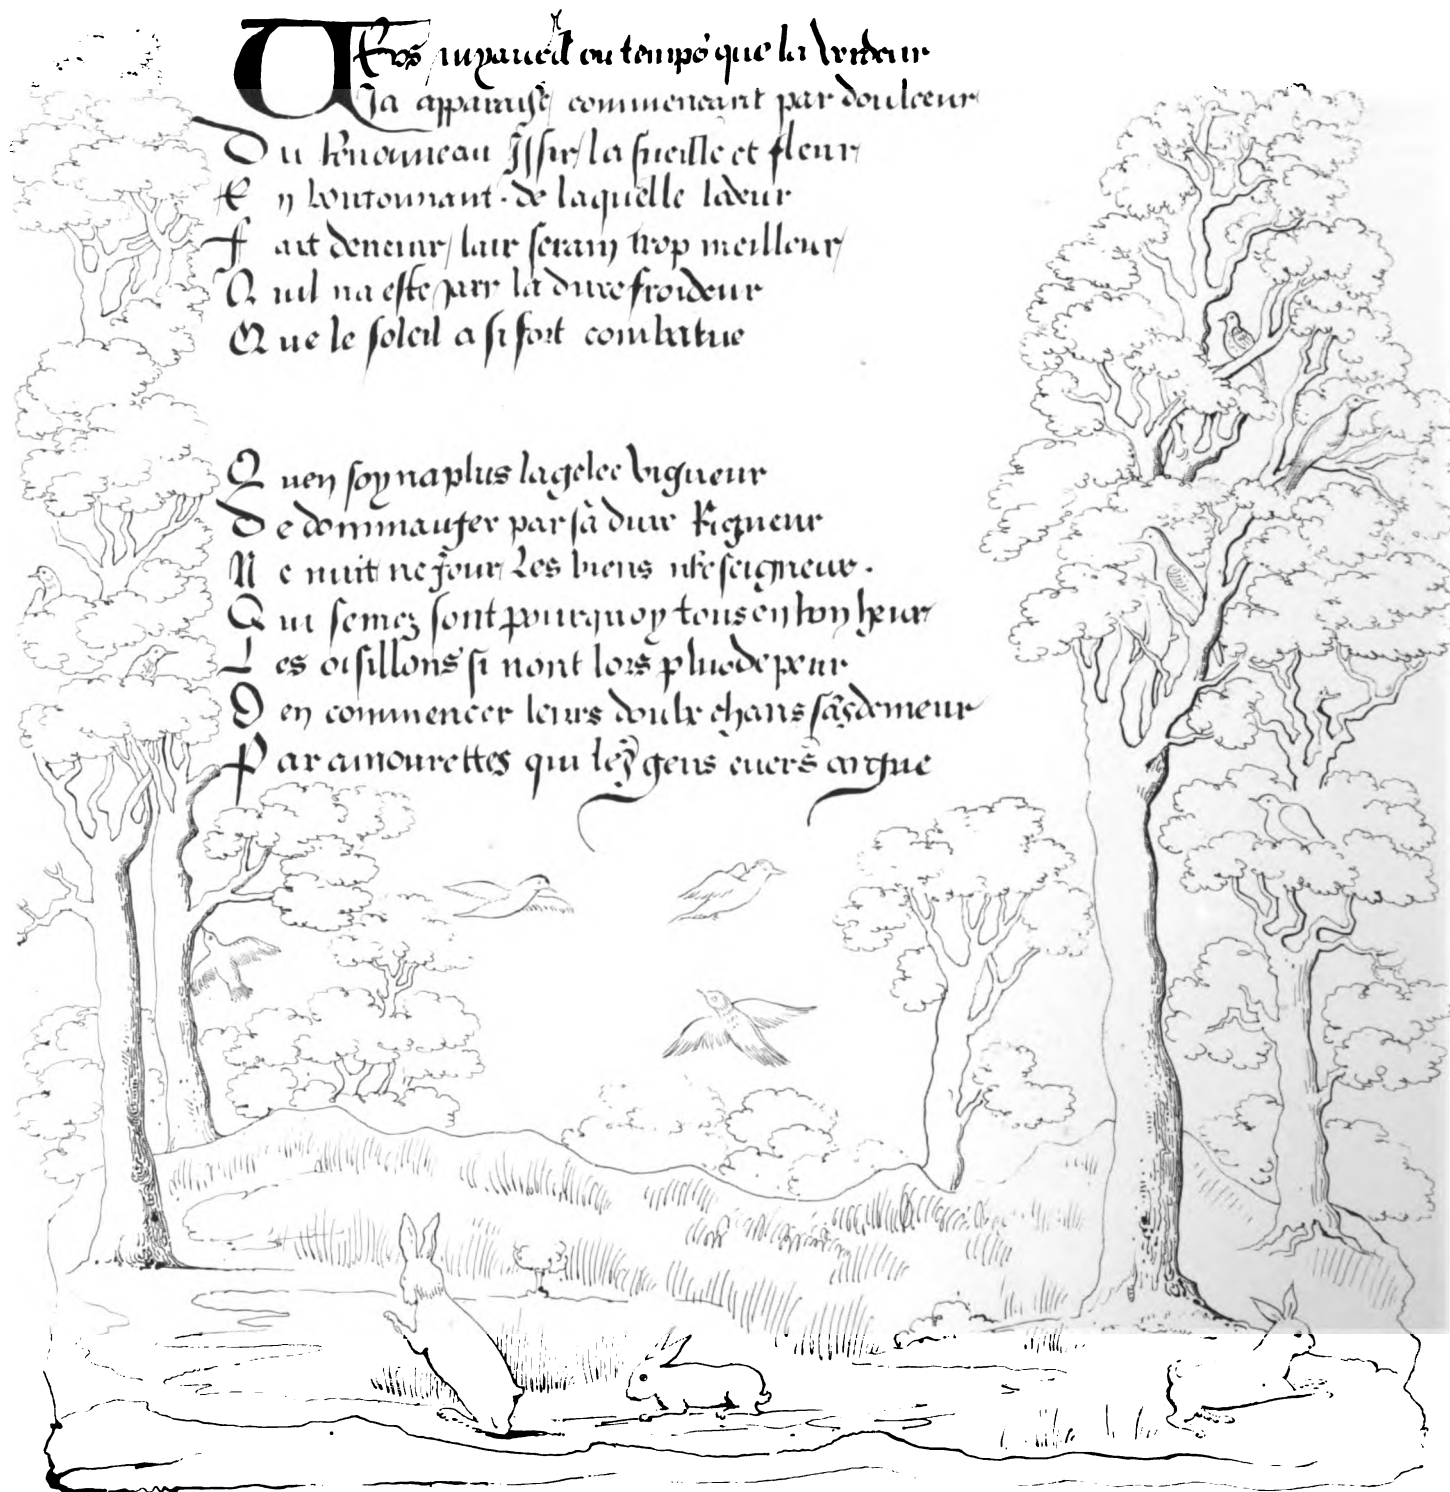 Vers my avril ou temps que la verdeur
Ja apparaist commencant par doulceur
Du Renouveau Issir la fueille et fleur
En boutonnant de laquelle lodeur
Fait devenir lair serain trop meilleur
Quil na este par la dure froideur
Que le soleil a si fort combatue
Quen soy na plus la gelee vigueur
De dommaiger par sa dure Rigueur
Ne nuit ne jour Les biens nre seigneur.
Qui semez sont pourquoy tous en bon heur
Les oisillons si nont lors plus de peur
Den commencer leurs doulx chans sãs demeur
Par amourettes qui les gens envers argue